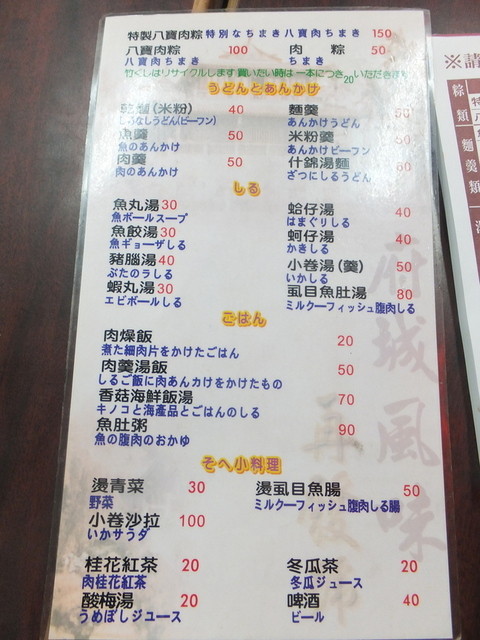 特製八寶肉粽 特別なちまき 八寶肉ちまき 150
八寶肉粽 100 肉 粽 50
八寶肉ちまき ちまき
竹くしはリサイクルします 買いたい時は一本につき20いただきます
うどんとあんかけ
(米粉) 40 麵羹 50
しるなしうどん(ビーフン) あんかけうどん
魚羹 50 米粉羹 50
魚のあんかけ あんかけビーフン
肉羹 50 什錦湯麵 60
肉のあんかけ ざつにしるうどん
しる
魚丸湯 30 蛤仔湯 40
魚ボールスープ はまぐりしる
魚餃湯 30 蚵仔湯 40
魚ギョーザしる かきしる
豬腦湯 40 小卷湯(羹) 50
ぶたのうしる いかしる
蝦丸湯 30 虱目魚肚湯 80
エビボールしる ミルクーフィッシュ腹肉しる
ごはん
肉燥飯 20
煮た細肉片をかけたごはん
肉羹湯飯 50
しるご飯に肉あんカけをかけたもの
香菇海鮮飯湯 70
キノコと海產品とごはんのしる
魚肚粥 90
魚の腹肉のおかゆ
そへ小料理
燙青菜 30 燙虱目魚腸 50
野菜 ミルクーフィッシュ腹肉しる腸
小卷沙拉 100
いかサうダ
桂花紅茶 20 冬瓜茶 20
肉桂花紅茶 冬瓜ジュース
酸梅湯 20 啤酒 40
うめぼしジユース ビール
府城風味
※請
粽類
麵羹類